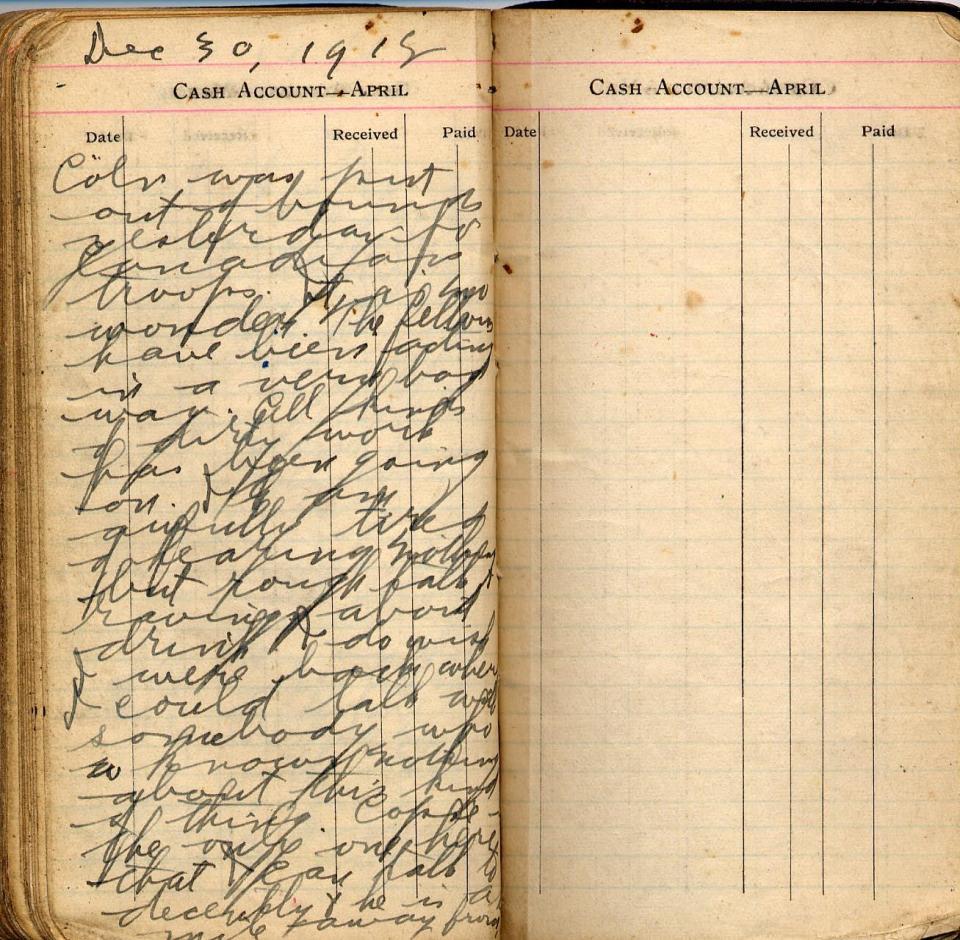 Dec 30, 1918
CASH ACCOUNT—APRIL
Date Received Paid
Cöln was put
out of bounds
yesterday to
Canadian
troops. It is no
wonder. The fellows
have been acting
in a very bad
way. All kinds
of dirty work
has been going
on. I am
awfully tired
of hearing nothing
but rough talk &
raving about
drink. I do wish
I were back where
I could talk with
somebody who
knows nothing
about this kind
of thing. Copp is
the only one here
that I can talk to
decently & he is a
mile away from
CASH ACCOUNT—APRIL
Date Received Paid